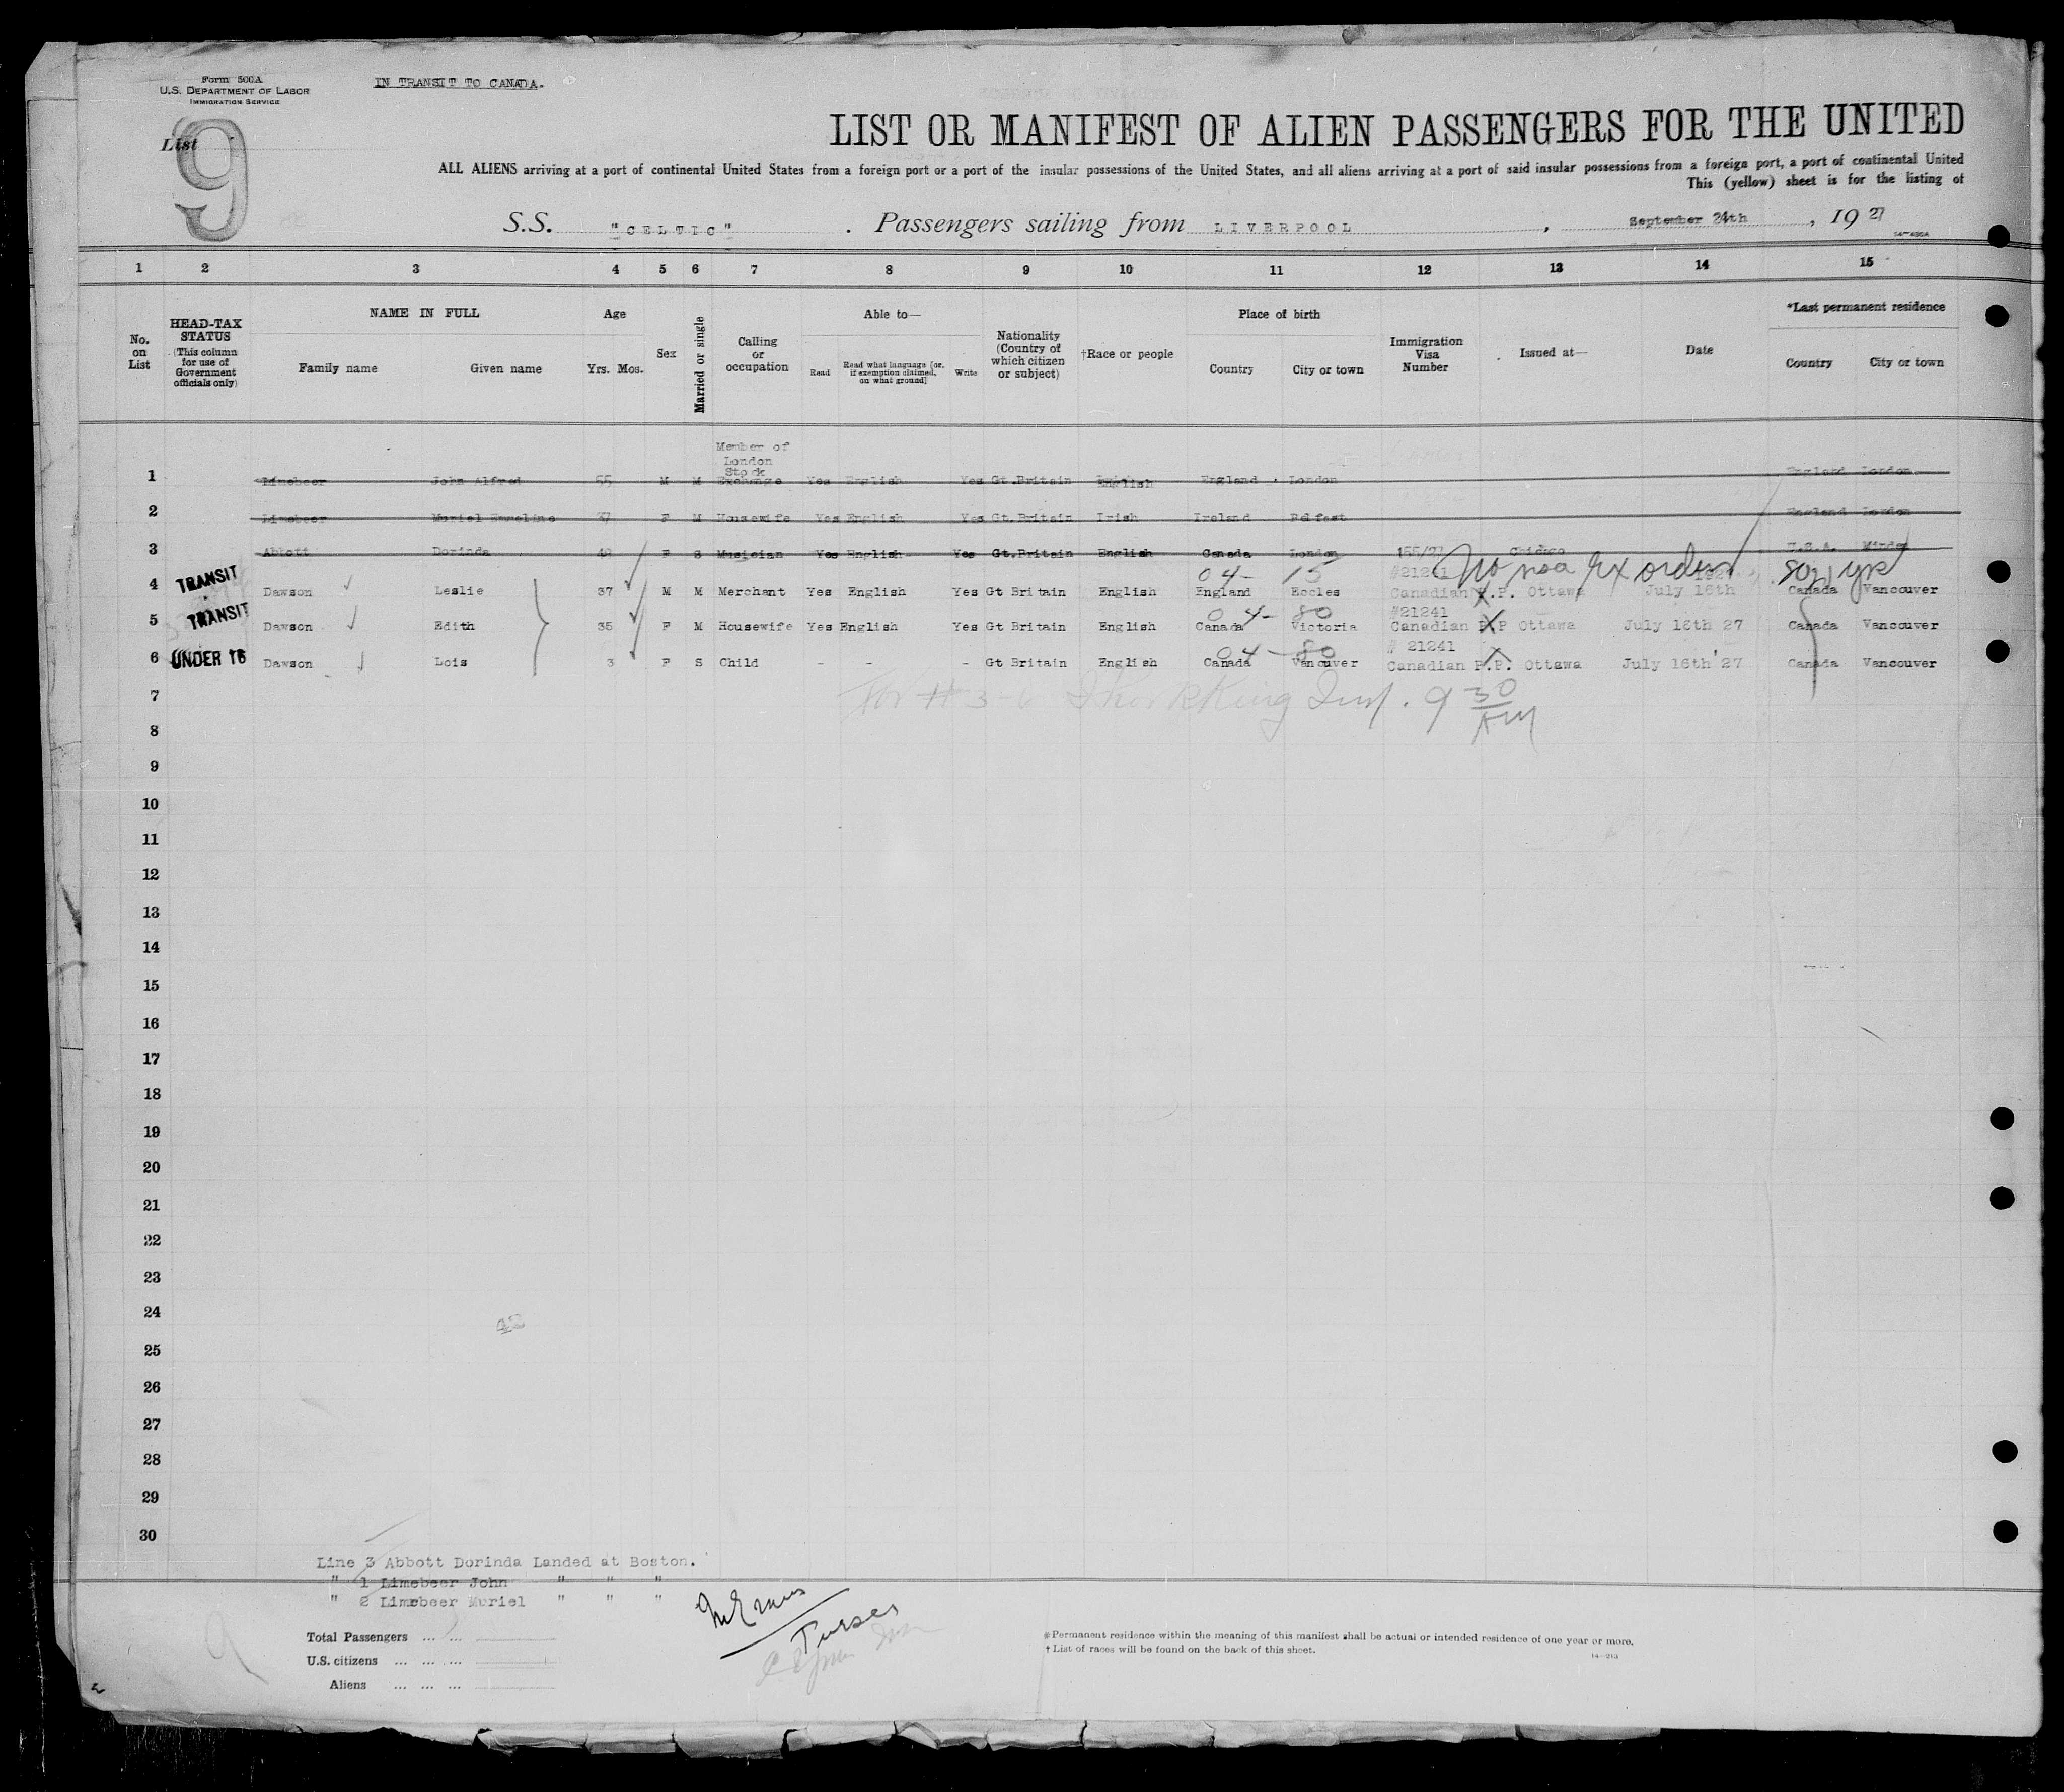 Form 500A
U.S. DEPARTMENT OF LABOR
IMMIGRATION SERVICE
IN TRANSIT TO CANADA.
List 9
LIST OR MANIFEST OF ALIEN PASSENGERS FOR THE UNITED
ALL ALIENS arriving at a port of continental United States from a foreign port or a port of the insular possessions of the United States, and all aliens arriving at a port of said insular possessions from a foreign port, a port of continental United
This (yellow) sheet is for the listing of
S.S. "CELTIC" . Passengers sailing from LIVERPOOL , September 24th , 19 27
1 2 3 4 5 6 7 8 9 10 11 12 13 14 15
No. on List
HEAD-TAX STATUS (This column for use of Government officials only)
NAME IN FULL
Family name Given name
Age
Yrs. Mos.
Sex
Married or single
Calling or occupation
Able to—
Read Read what language [or, if exemption claimed, on what ground] Write
Nationality (Country of which citizen or subject)
†Race or people
Place of birth
Country City or town
Immigration Visa Number
Issued at—
Date
*Last permanent residence
Country City or town
1 Limebeer John Alfred 55 M M Member of London Stock Exchange Yes English Yes Gt.Britain English England London England London
2 Limebeer Muriel Emmeline 37 F M Housewife Yes English Yes Gt.Britain Irish Ireland Belfast England London
3 Abbott Dorinda 48 F S Musician Yes English Yes Gt.Britain English Canada London 155/27 Chicago U.S.A. Minden
04- 15 #21241
4 TRANSIT Dawson Leslie 37 M M Merchant Yes English Yes Gt Britain English England Eccles Canadian P.P. Ottawa July 16th Canada Vancouver
04- 80 #21241
5 TRANSIT Dawson Edith 35 F M Housewife Yes English Yes Gt Britain English Canada Victoria Canadian P.P Ottawa July 16th 27 Canada Vancouver
04-80 # 21241
6 UNDER 16 Dawson Lois 3 F S Child - - - Gt Britain English Canada Vancuver Canadian P.P. Ottawa July 16th'27 Canada Vancouver
7 For #3-6 King Insp. 9 30 AM
8
9
10
11
12
13
14
15
16
17
18
19
20
21
22
23
24
25
26
27
28
29
30
Line 3 Abbott Dorinda Landed at Boston.
" 1 Limebeer John " " "
" 2 Limebeer Muriel " " "
Purser
Total Passengers ... ...
U.S. citizens ... ... ...
Aliens ... ... ...
*Permanent residence within the meaning of this manifest shall be actual or intended residence of one year or more.
† List of races will be found on the back of this sheet.
14-213